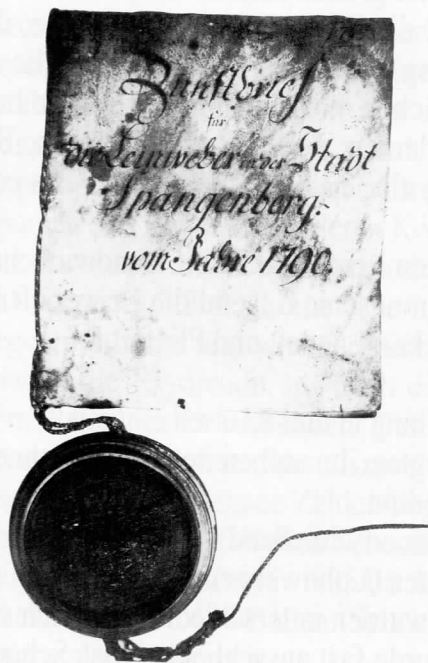 Zunftbrief
für
die Leinweber in der Stadt
Spangenberg.
vom Jahre 1790.